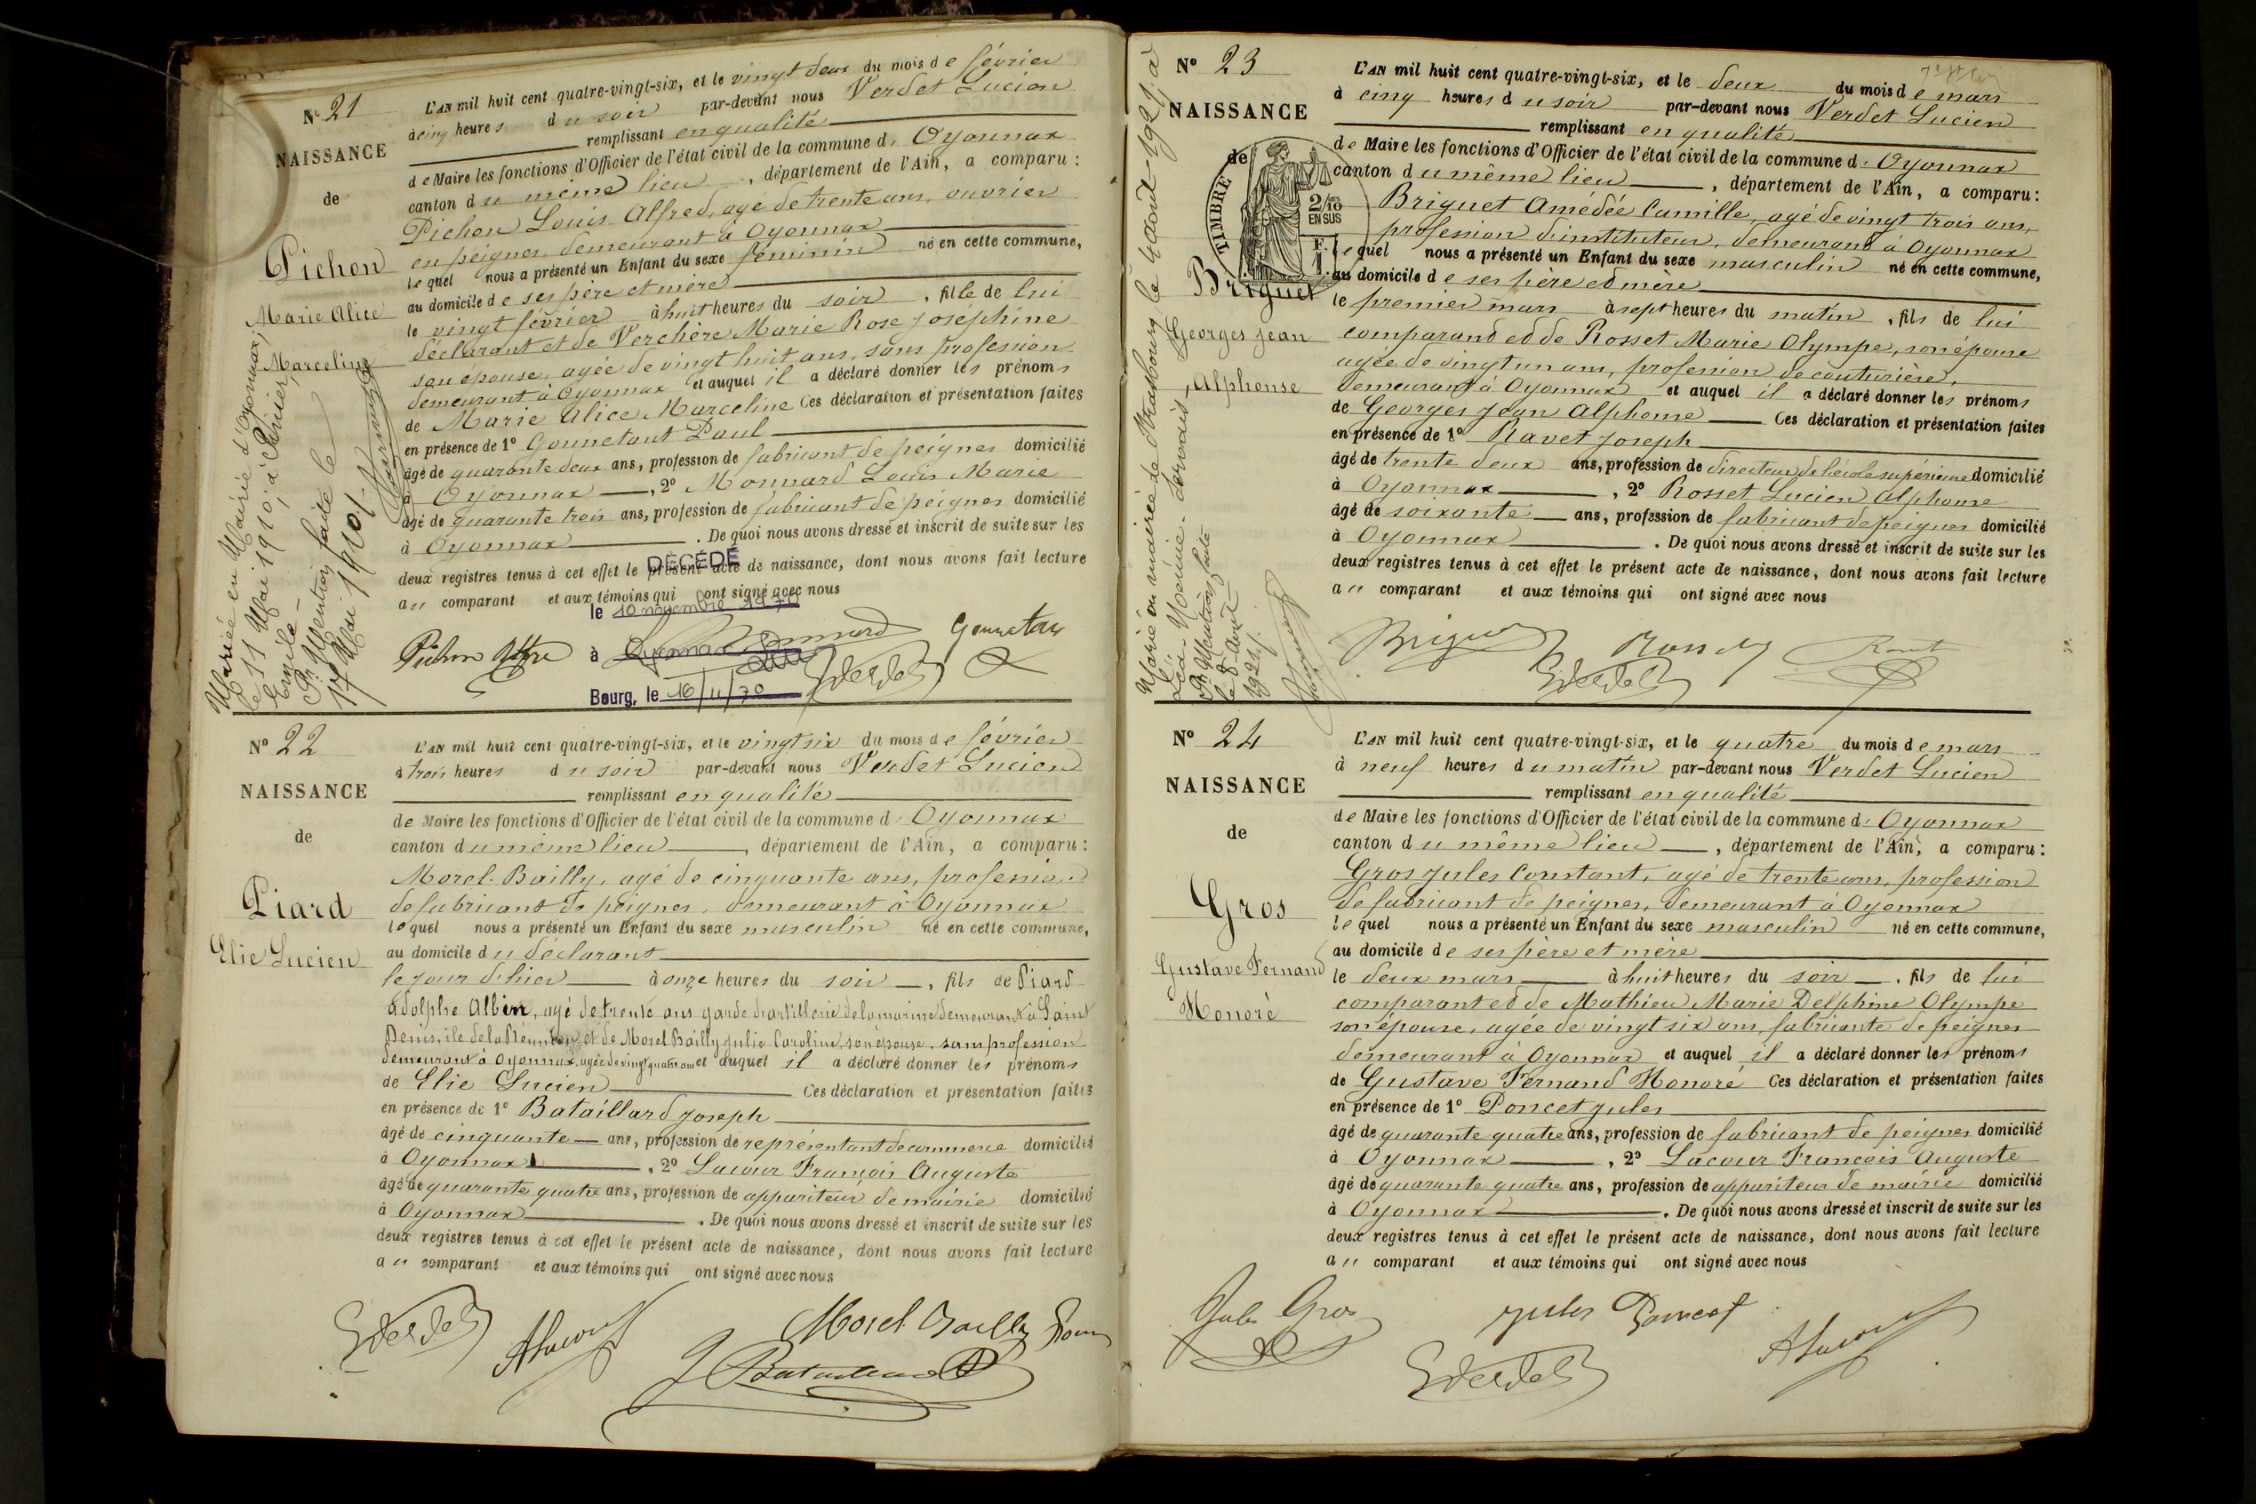 N° 21
NAISSANCE
de
Pichon
Marie Alice
Marceline
Mariée en Mairie d'Oyonnax,
le 11 Mai 1910, à Périer,
Emile –
Pr Mention faite le
17 Mai 1910/.
L'AN mil huit cent quatre-vingt-six, et le vingt deux du mois de février
à cinq heures du soir par-devant nous Verdet Lucien
remplissant en qualité
de Maire les fonctions d'Officier de l'état civil de la commune d' Oyonnax
canton du même lieu, département de l'Ain, a comparu :
Pichon Louis Alfred, agé de trente ans, ouvrier
en peignes, demeurant à Oyonnax
lequel nous a présenté un Enfant du sexe féminin né en cette commune,
au domicile de ses père et mère
le vingt février à huit heures du soir, fille de lui
déclarant et de Verchère Marie Rose Josephine
son épouse, agée de vingt huit ans, sans profession
demeurant à Oyonnax et auquel il a déclaré donner les prénoms
de Marie Alice Marceline Ces déclaration et présentation faites
en présence de 1° Gonnetant Paul
âgé de quarante deux ans, profession de fabricant de peignes domicilié
à Oyonnax, 2° Monnard Louis Marie
âgé de quarante trois ans, profession de fabricant de peignes domicilié
à Oyonnax. De quoi nous avons dressé et inscrit de suite sur les
deux registres tenus à cet effet le présent acte de naissance, dont nous avons fait lecture
au comparant et aux témoins qui ont signé avec nous
DÉCÉDÉ
le 10 novembre 1970
à Oyonnax
Bourg, le 16/11/70
N° 22
NAISSANCE
de
Piard
Elie Lucien
L'AN mil huit cent quatre-vingt-six, et le vingt six du mois de février
à trois heures du soir par-devant nous Verdet Lucien
remplissant en qualité
de Maire les fonctions d'Officier de l'état civil de la commune d' Oyonnax
canton du même lieu, département de l'Ain, a comparu :
Morel-Bailly, agé de cinquante ans, profession
de fabricant de peignes, demeurant à Oyonnax
lequel nous a présenté un Enfant du sexe masculin né en cette commune,
au domicile du déclarant
le jour d'hier à onze heures du soir, fils de Piard
Adolphe Albin, agé de trente ans, garde d'artillerie de la marine demeurant à Saint
Denis, île de la Réunion, et de Morel Bailly Julie Caroline, son épouse, sans profession
demeurant à Oyonnax, agée de vingt quatre ans et auquel il a déclaré donner les prénoms
de Elie Lucien Ces déclaration et présentation faites
en présence de 1° Bataillard Joseph
âgé de cinquante ans, profession de représentant de commerce domicilié
à Oyonnax, 2° Lacour François Auguste
âgé de quarante quatre ans, profession de appariteur de mairie domicilié
à Oyonnax. De quoi nous avons dressé et inscrit de suite sur les
deux registres tenus à cet effet le présent acte de naissance, dont nous avons fait lecture
au comparant et aux témoins qui ont signé avec nous
Morel Bailly
N° 23
NAISSANCE
de
Briguet
Georges Jean
Alphonse
TIMBRE
2/10
EN SUS
Marié en mairie de Strasbourg le 4 août 1921, à
Pr Mention faite
le 8 Août
1921/.
L'AN mil huit cent quatre-vingt-six, et le deux du mois de mars
à cinq heures du soir par-devant nous Verdet Lucien
remplissant en qualité
de Maire les fonctions d'Officier de l'état civil de la commune d' Oyonnax
canton du même lieu, département de l'Ain, a comparu :
Briguet Amedée Camille, agé de vingt trois ans,
profession d'instituteur, demeurant à Oyonnax
lequel nous a présenté un Enfant du sexe masculin né en cette commune,
au domicile de ses père et mère
le premier mars à sept heures du matin, fils de lui
comparant et de Rosset Marie Olympe, son épouse
agée de vingt un ans, profession de couturière,
demeurant à Oyonnax et auquel il a déclaré donner les prénoms
de Georges Jean Alphonse Ces déclaration et présentation faites
en présence de 1° Ravet Joseph
âgé de trente deux ans, profession de directeur de l'école supérieure domicilié
à Oyonnax, 2° Rosset Lucien Alphonse
âgé de soixante ans, profession de fabricant de peignes domicilié
à Oyonnax. De quoi nous avons dressé et inscrit de suite sur les
deux registres tenus à cet effet le présent acte de naissance, dont nous avons fait lecture
au comparant et aux témoins qui ont signé avec nous
N° 24
NAISSANCE
de
Gros
Gustave Fernand
Honoré
L'AN mil huit cent quatre-vingt-six, et le quatre du mois de mars
à neuf heures du matin par-devant nous Verdet Lucien
remplissant en qualité
de Maire les fonctions d'Officier de l'état civil de la commune d' Oyonnax
canton du même lieu, département de l'Ain, a comparu :
Gros Jules Constant, agé de trente ans, profession
de fabricant de peignes, demeurant à Oyonnax
lequel nous a présenté un Enfant du sexe masculin né en cette commune,
au domicile de ses père et mère
le deux mars à huit heures du soir, fils de lui
comparant et de Mathieu Marie Delphine Olympe
son épouse, agée de vingt six ans, fabricante de peignes
demeurant à Oyonnax et auquel il a déclaré donner les prénoms
de Gustave Fernand Honoré Ces déclaration et présentation faites
en présence de 1° Poncet Jules
âgé de quarante quatre ans, profession de fabricant de peignes domicilié
à Oyonnax, 2° Lacour François Auguste
âgé de quarante quatre ans, profession de appariteur de mairie domicilié
à Oyonnax. De quoi nous avons dressé et inscrit de suite sur les
deux registres tenus à cet effet le présent acte de naissance, dont nous avons fait lecture
au comparant et aux témoins qui ont signé avec nous
Jules Gros
Jules Poncet